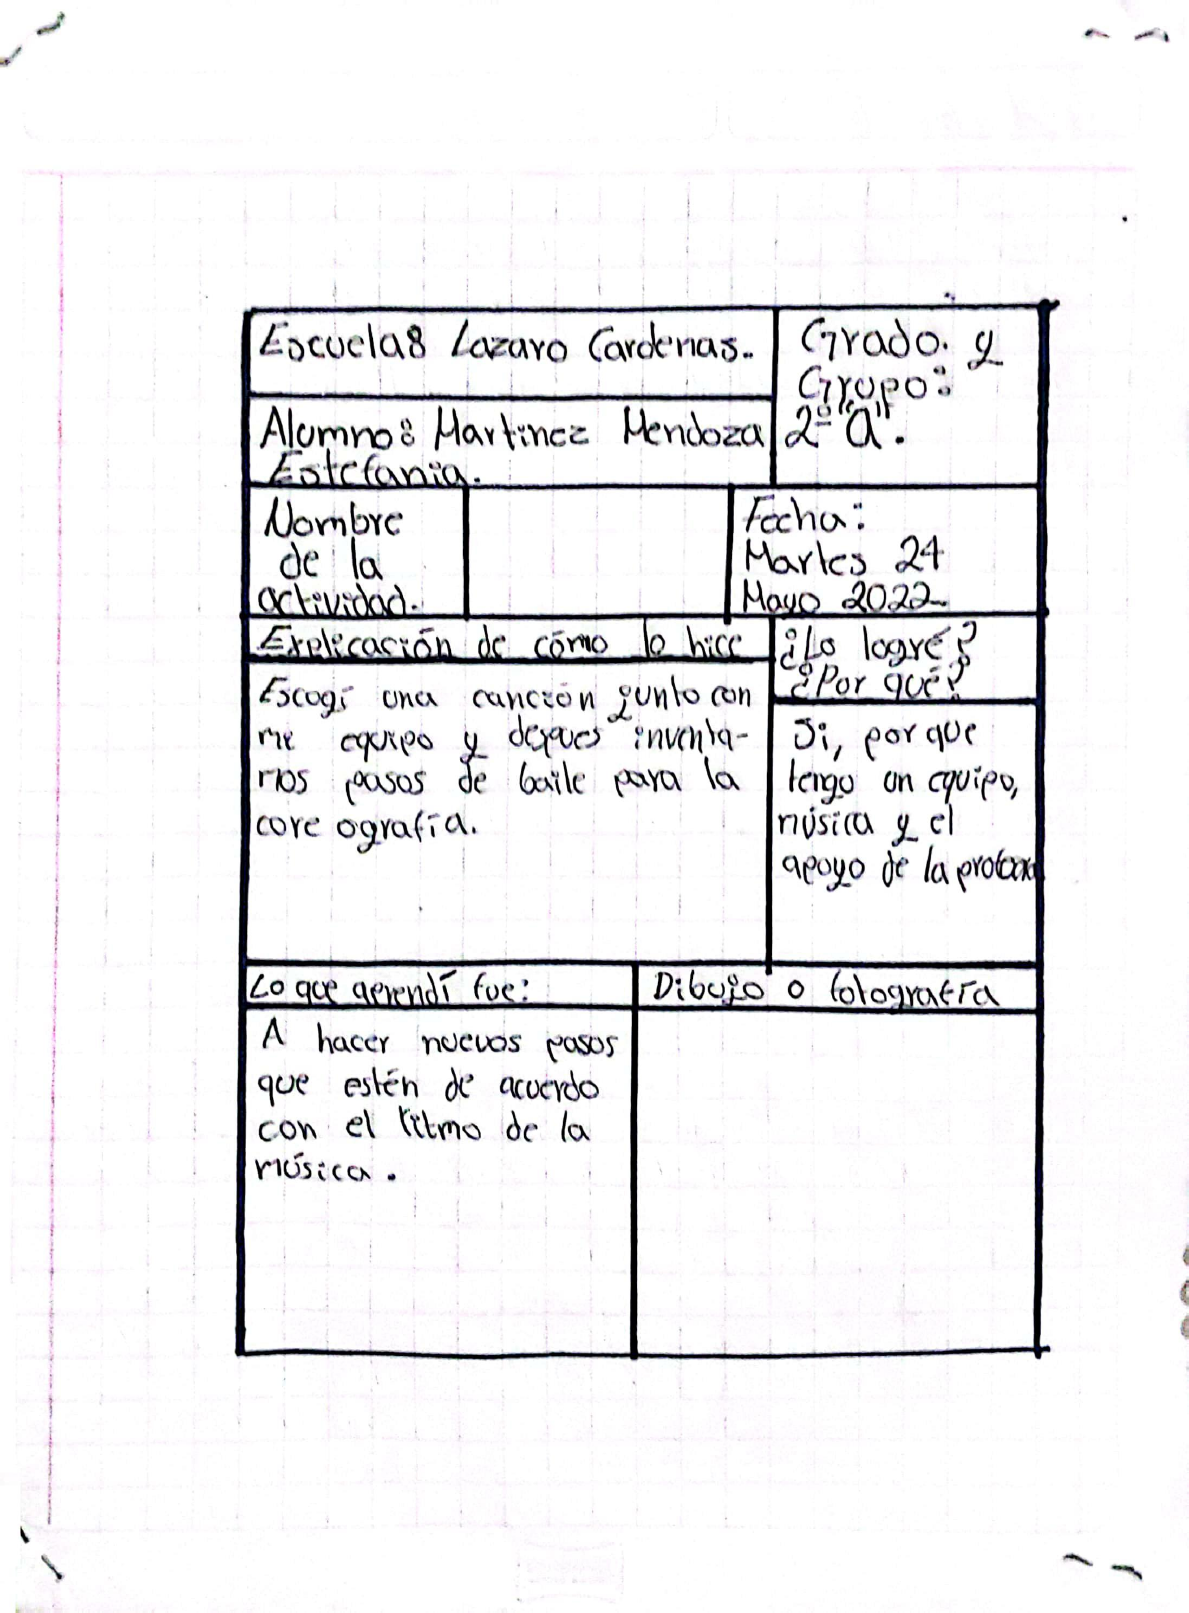 Escuela: Lazaro Cardenas.
Grado y
Grupo:
2º "a".
Alumno: Martinez Mendoza
Estefania.
Nombre
de la
actividad.
Fecha:
Martes 24
Mayo 2022
Explicación de cómo lo hice
Escogí una canción junto con
mi equipo y despues inventa-
mos pasos de baile para la
core ografía.
¿Lo logré?
¿Por qué?
Si, por que
tengo un equipo,
música y el
apoyo de la
Lo que aprendí fue:
A hacer nuevos pasos
que estén de acuerdo
con el ritmo de la
música.
Dibujo o fotografía